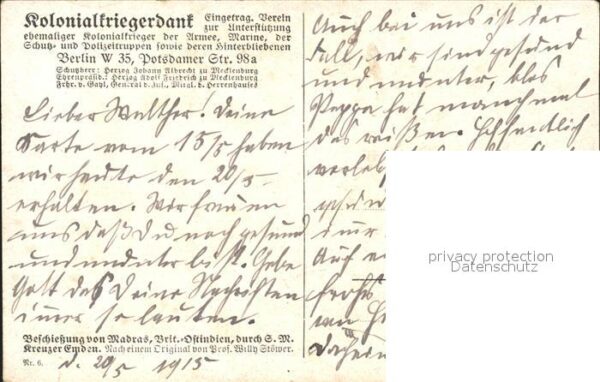 Kolonialkriegerdank Eingetrag. Verein
zur Unterstützung
ehemaliger Kolonialkrieger der Armee, Marine, der
Schutz- und Polizeitruppen sowie deren Hinterbliebenen
Berlin W 35, Potsdamer Str. 98a
Schutzherr: Herzog Johann Albrecht zu Mecklenburg
Ehrenpräsid.: Herzog Adolf Friedrich zu Mecklenburg
Frhr. v. Gayl, General d. Inf., Mitgl. d. Herrenhauses
Lieber Walther! Deine
Karte vom 15/5 haben
wir heute den 20/5
erhalten. Wir freuen
uns daß Du noch gesund
und munter bist. Gebe
Gott daß Deine Nachrichten
immer so lauten.
Beschießung von Madras, Brit.-Ostindien, durch S. M.
Kreuzer Emden. Nach einem Original von Prof. Willy Stöwer.
Nr. 6.
d. 20/5 1915
Auch bei uns ist der
Fall, wir sind gesund
und munter, blos
Peppa hat manchmal
das reißen. Hoffentlich
immer
Auch
frohes
Daheim
privacy protection
Datenschutz